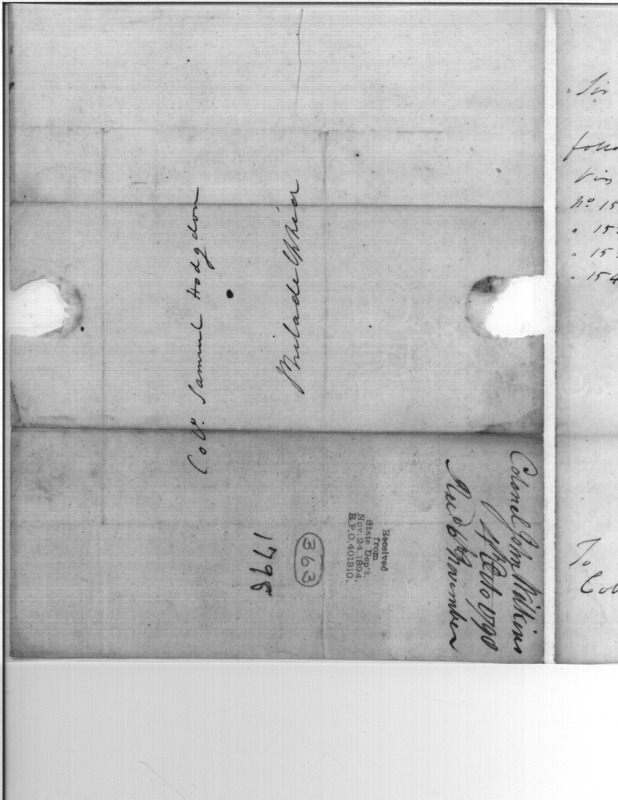 Colo. Samuel Hodgdon
Philadelphia
Colonel John Wilkins
4th Octo 1798
Recd 6th November
Received
from
State Dep't.
Nov. 24, 1894.
R.P.O. 401810.
363
1798
Sir
No 15
To
Col